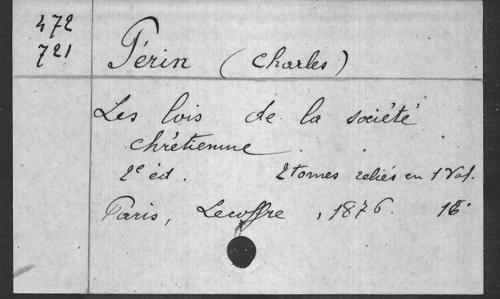 472
721
Périn (Charles)
Les lois de la société
chrétienne.
2e éd. 2 tomes reliés en 1 vol.
Paris, Lecoffre, 1876.